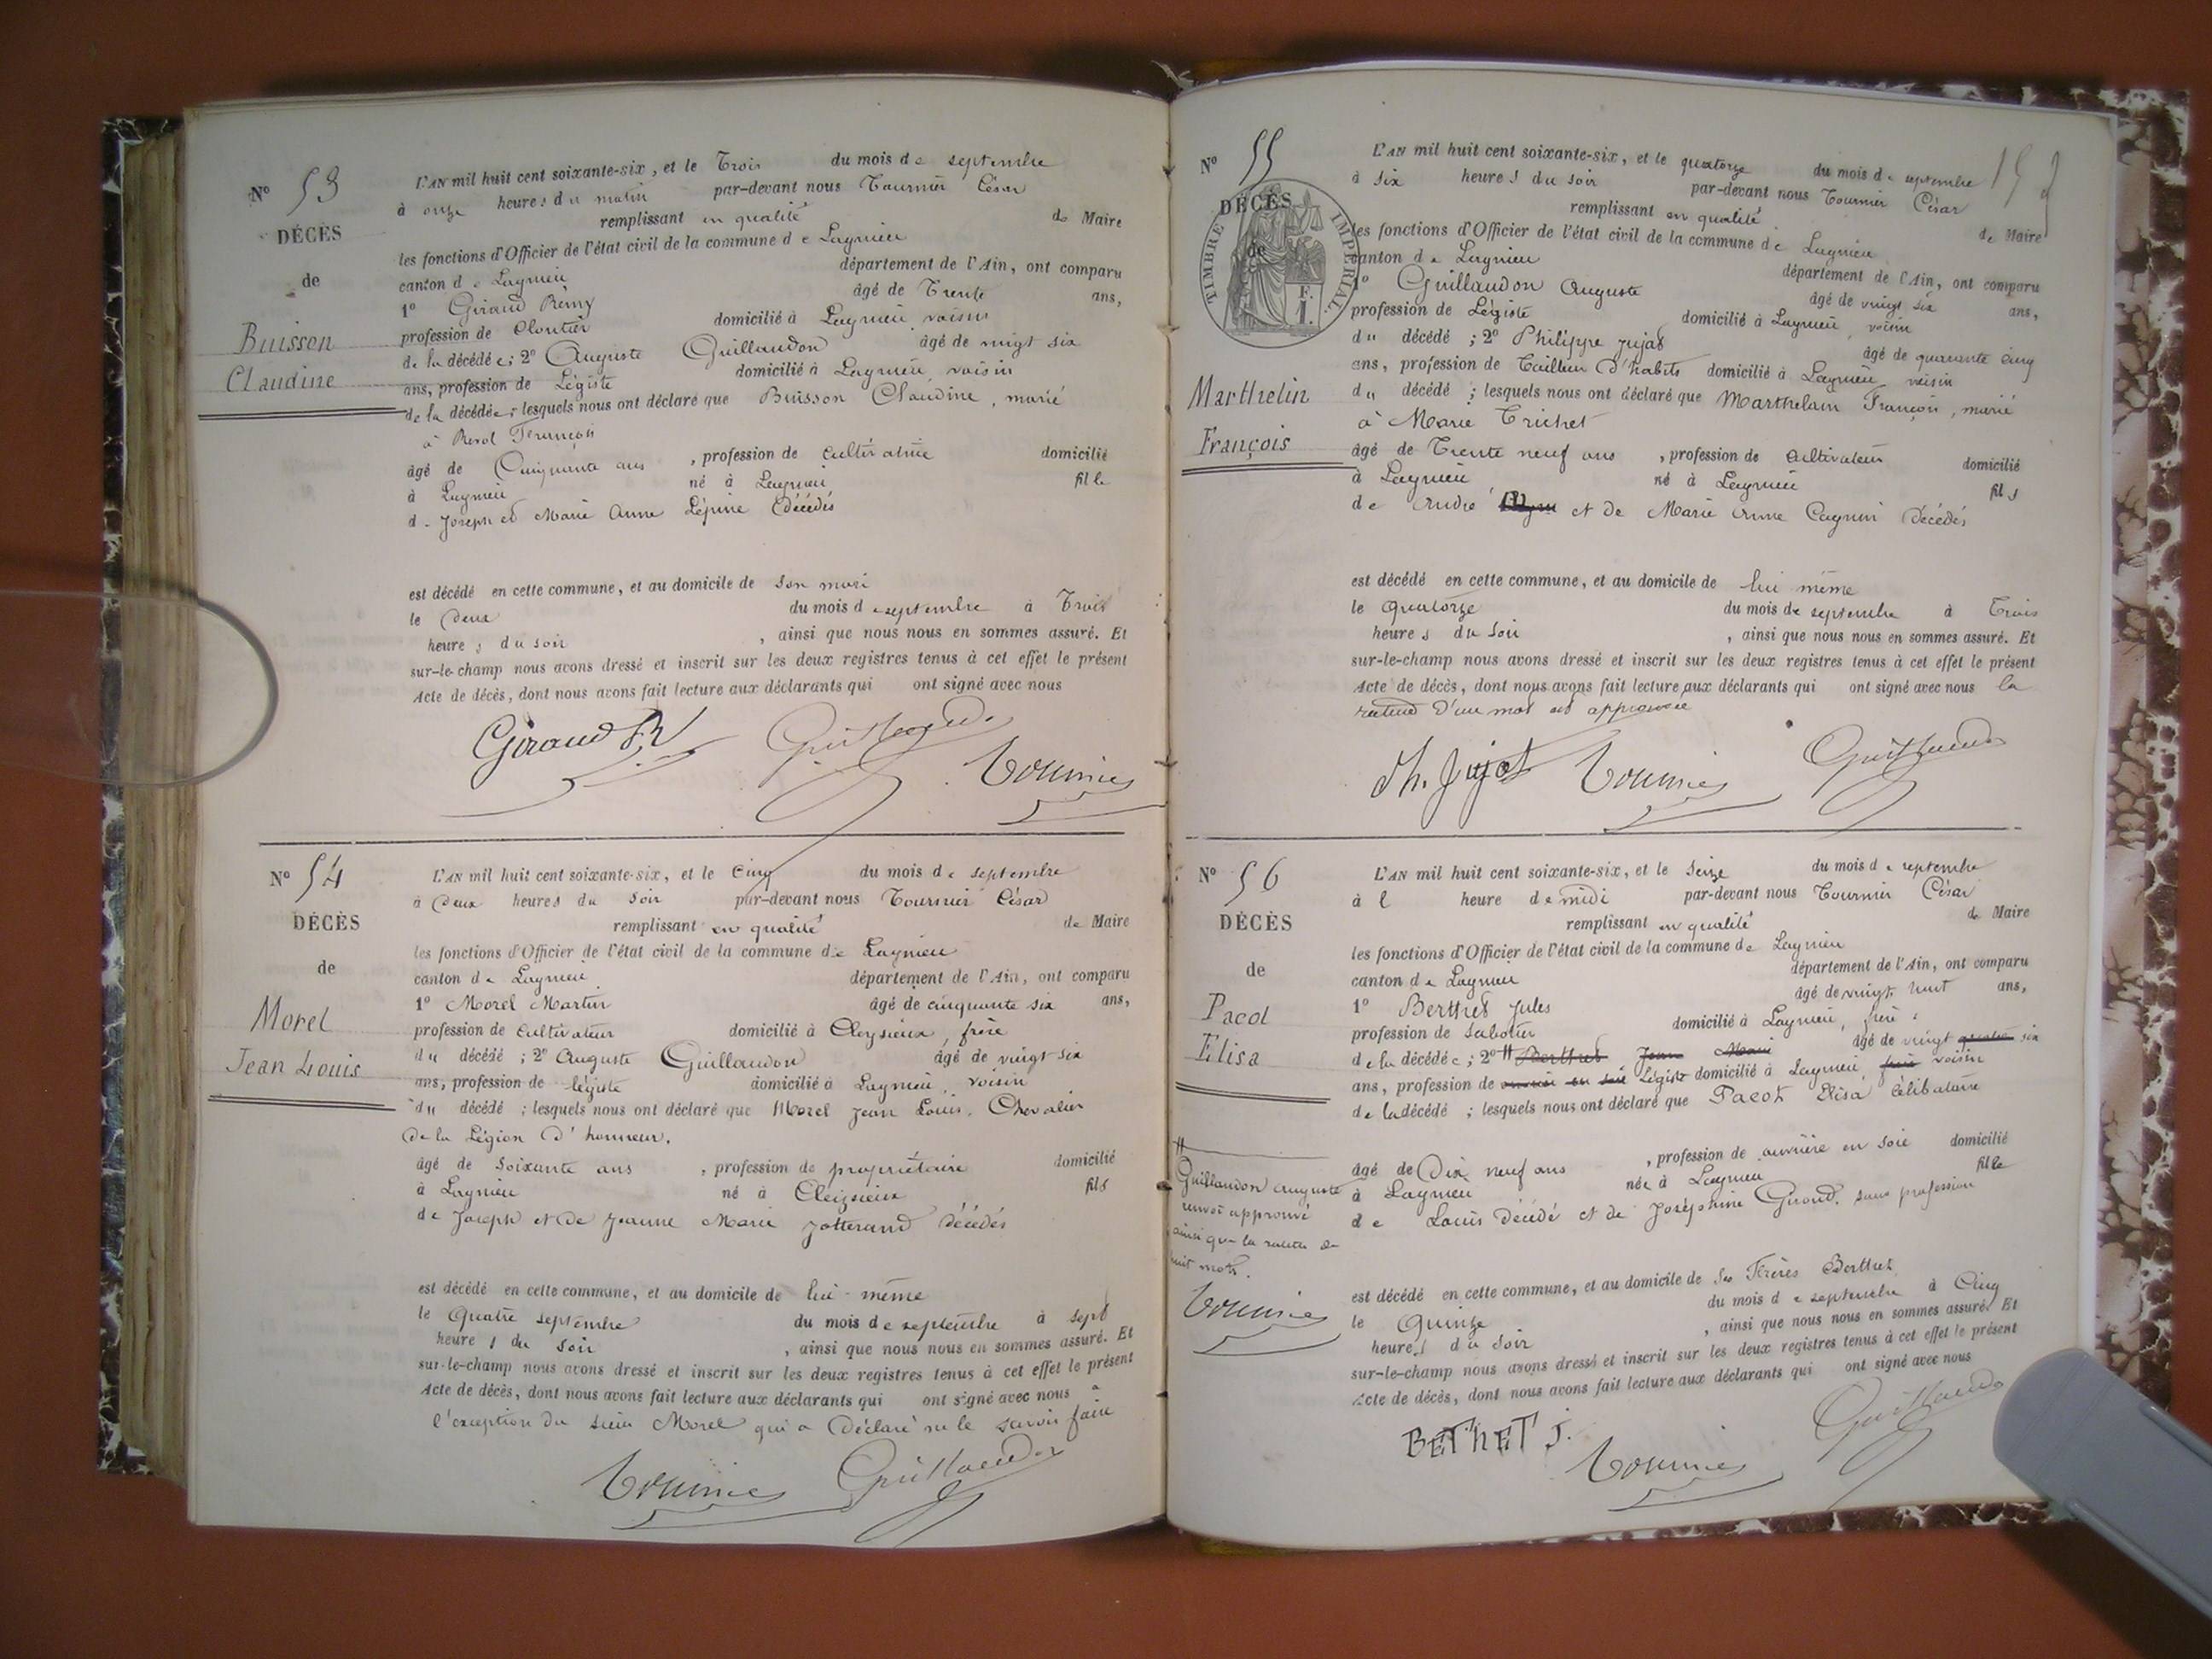 N° 53
DÉCÈS
de
Buisson
Claudine
L'AN mil huit cent soixante-six, et le Trois du mois de septembre
à onze heures du matin par-devant nous Tournier César
remplissant en qualité de Maire
les fonctions d'Officier de l'état civil de la commune de Lagnieu
canton de Lagnieu département de l'Ain, ont comparu
1° Giraud Rémy âgé de Trente ans,
profession de Cloutier domicilié à Lagnieu, voisin
de la décédée; 2° Auguste Guillaudon âgé de vingt six
ans, profession de Légiste domicilié à Lagnieu, voisin
de la décédée; lesquels nous ont déclaré que Buisson Claudine, marié
à François
âgé de Cinquante ans, profession de Cultivatrice domicilié
à Lagnieu né à Lagnieu fille
de Joseph et Marie Anne Lépine Décédés
est décédé en cette commune, et au domicile de son mari
le Deux du mois de septembre à Trois
heures du soir, ainsi que nous nous en sommes assuré. Et
sur-le-champ nous avons dressé et inscrit sur les deux registres tenus à cet effet le présent
Acte de décès, dont nous avons fait lecture aux déclarants qui ont signé avec nous
Giraud R Guillaudon Tournier
N° 54
DÉCÈS
de
Morel
Jean Louis
L'AN mil huit cent soixante-six, et le Cinq du mois de septembre
à Deux heures du soir par-devant nous Tournier César
remplissant en qualité de Maire
les fonctions d'Officier de l'état civil de la commune de Lagnieu
canton de Lagnieu département de l'Ain, ont comparu
1° Morel Martin âgé de cinquante six ans,
profession de Cultivateur domicilié à Cleyzieux, frère
du décédé; 2° Auguste Guillaudon âgé de vingt six
ans, profession de légiste domicilié à Lagnieu, voisin
du décédé; lesquels nous ont déclaré que Morel Jean Louis, Chevalier
De la Légion D'honneur,
âgé de Soixante ans, profession de propriétaire domicilié
à Lagnieu né à Cleizieux fils
de Joseph et de Jeanne Marie Jotterand Décédés
est décédé en cette commune, et au domicile de lui-même
le Quatre septembre du mois de septembre à sept
heures du soir, ainsi que nous nous en sommes assuré. Et
sur-le-champ nous avons dressé et inscrit sur les deux registres tenus à cet effet le présent
Acte de décès, dont nous avons fait lecture aux déclarants qui ont signé avec nous à
l'exception du sieur Morel qui a Déclaré ne le savoir faire
Tournier Guillaudon
N° 55
DÉCÈS
de
TIMBRE IMPÉRIAL
F.
1.
Marthelin
François
L'AN mil huit cent soixante-six, et le quatorze du mois de septembre
à six heures du soir par-devant nous Tournier César
remplissant en qualité de Maire
les fonctions d'Officier de l'état civil de la commune de Lagnieu
canton de Lagnieu département de l'Ain, ont comparu
1° Guillaudon Auguste âgé de vingt six ans,
profession de Légiste domicilié à Lagnieu, voisin
du décédé; 2° Philippe Jujat âgé de quarante cinq
ans, profession de Tailleur D'habits domicilié à Lagnieu voisin
du décédé; lesquels nous ont déclaré que Marthelain François, marié
à Marie Trichet
âgé de Trente neuf ans, profession de Cultivateur domicilié
à Lagnieu né à Lagnieu fils
de André et de Marie Anne Cagnin Décédés
est décédé en cette commune, et au domicile de lui même
le Quatorze du mois de septembre à Trois
heures du soir, ainsi que nous nous en sommes assuré. Et
sur-le-champ nous avons dressé et inscrit sur les deux registres tenus à cet effet le présent
Acte de décès, dont nous avons fait lecture aux déclarants qui ont signé avec nous la
rature D'un mot est approuvée
Ph. Jujat Tournier Guillaudon
N° 56
DÉCÈS
de
Pacot
Élisa
L'AN mil huit cent soixante-six, et le Seize du mois de septembre
à l heure de midi par-devant nous Tournier César
remplissant en qualité de Maire
les fonctions d'Officier de l'état civil de la commune de Lagnieu
canton de Lagnieu département de l'Ain, ont comparu
1° Berthet Jules âgé de vingt huit ans,
profession de Sabotier domicilié à Lagnieu, frère
de la décédée; 2° # Berthet Jean Marie âgé de vingt quatre six
ans, profession de ouvrier en soie Légiste domicilié à Lagnieu, frère voisin
de la décédé; lesquels nous ont déclaré que Pacot Élisa Célibataire
âgé de Dix neuf ans, profession de ouvrière en soie domicilié
à Lagnieu née à Lagnieu fille
de Louis Décédé et de Joséphine Girond, sans profession
#
Guillaudon Auguste
renvoi approuvé
ainsi que la rature de
huit mots.
Tournier
est décédé en cette commune, et au domicile de Ses Frères Berthet
le Quinze du mois de septembre à Cinq
heures du soir, ainsi que nous nous en sommes assuré. Et
sur-le-champ nous avons dressé et inscrit sur les deux registres tenus à cet effet le présent
Acte de décès, dont nous avons fait lecture aux déclarants qui ont signé avec nous
BETHET J. Tournier Guillaudon